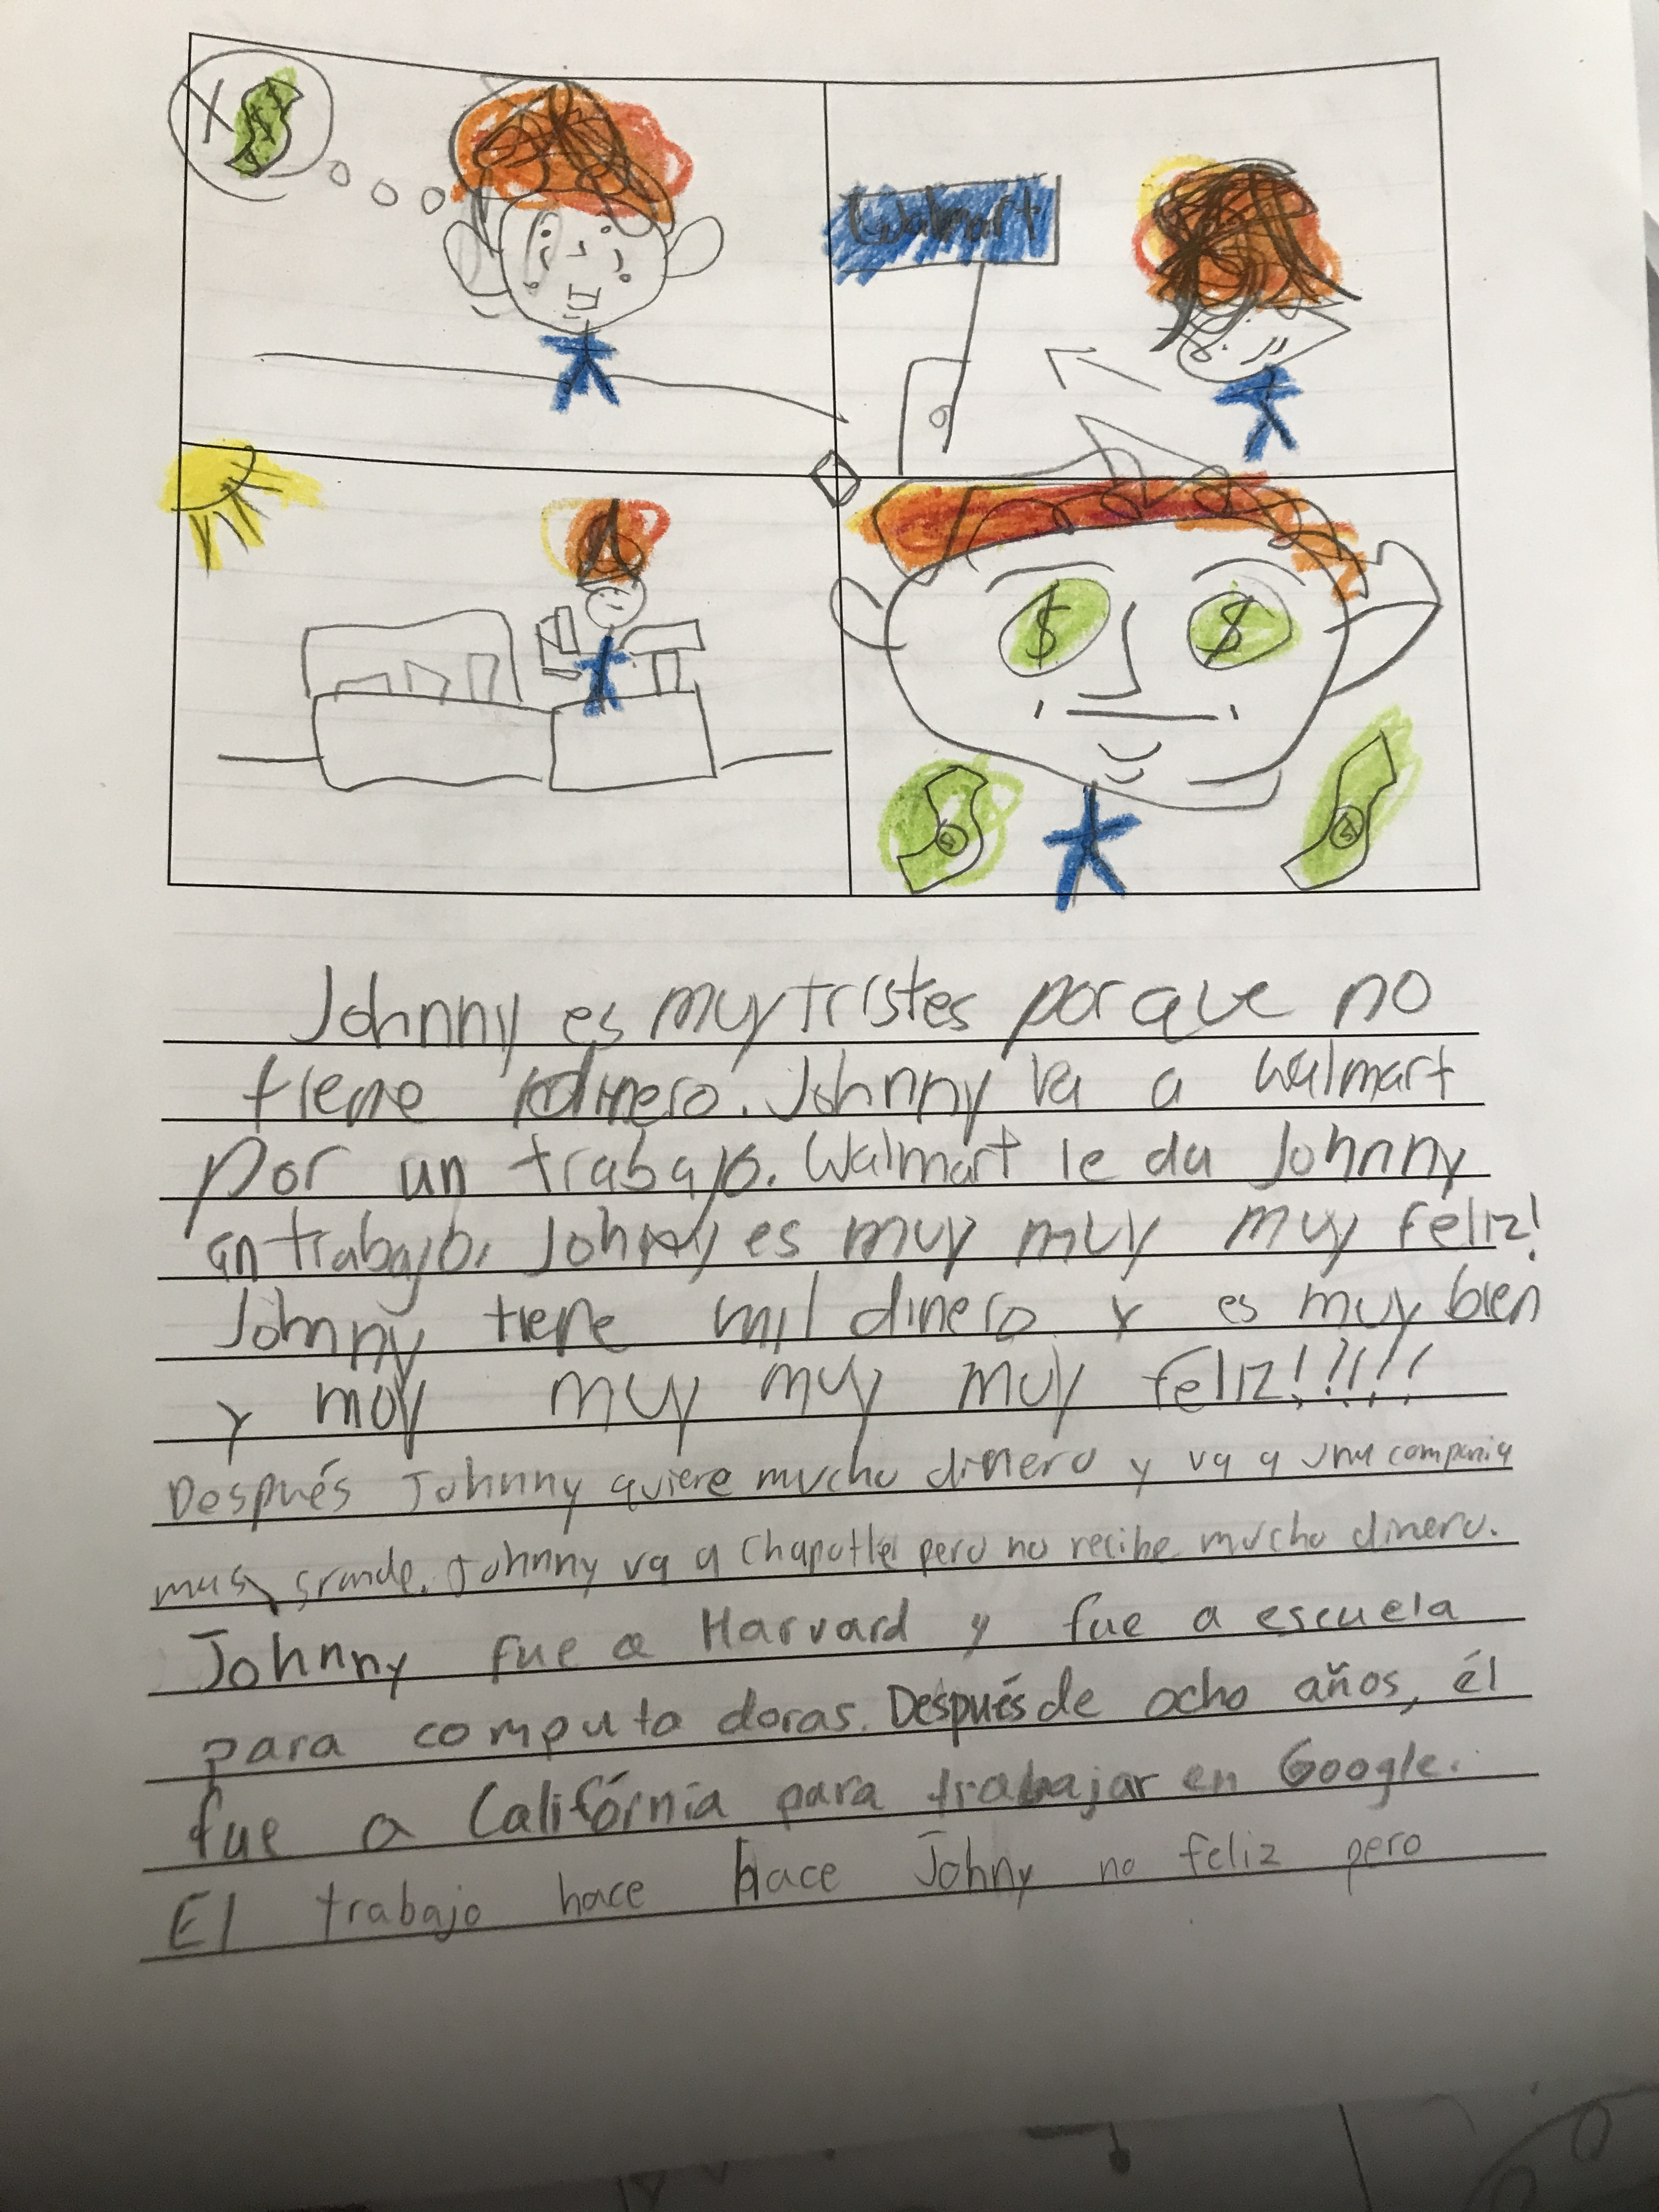 X $$$
Walmart
$ $
$ $
Johnny es muy tristes porque no
tiene dinero. Johnny va a Walmart
por un trabajo. Walmart le da Johnny
un trabajo. Johnny es muy muy muy feliz!
Johnny tiene mil dinero y es muy bien
y muy muy muy muy feliz!!!!!!
Después Johnny quiere mucho dinero y va a una compania
mas grande. Johnny va a Chapotle pero no recibe mucho dinero.
Johnny fue a Harvard y fue a escuela
para computadoras. Después de ocho años, él
fue a Califórnia para trabajar en Google.
El trabajo hace hace Johny no feliz pero